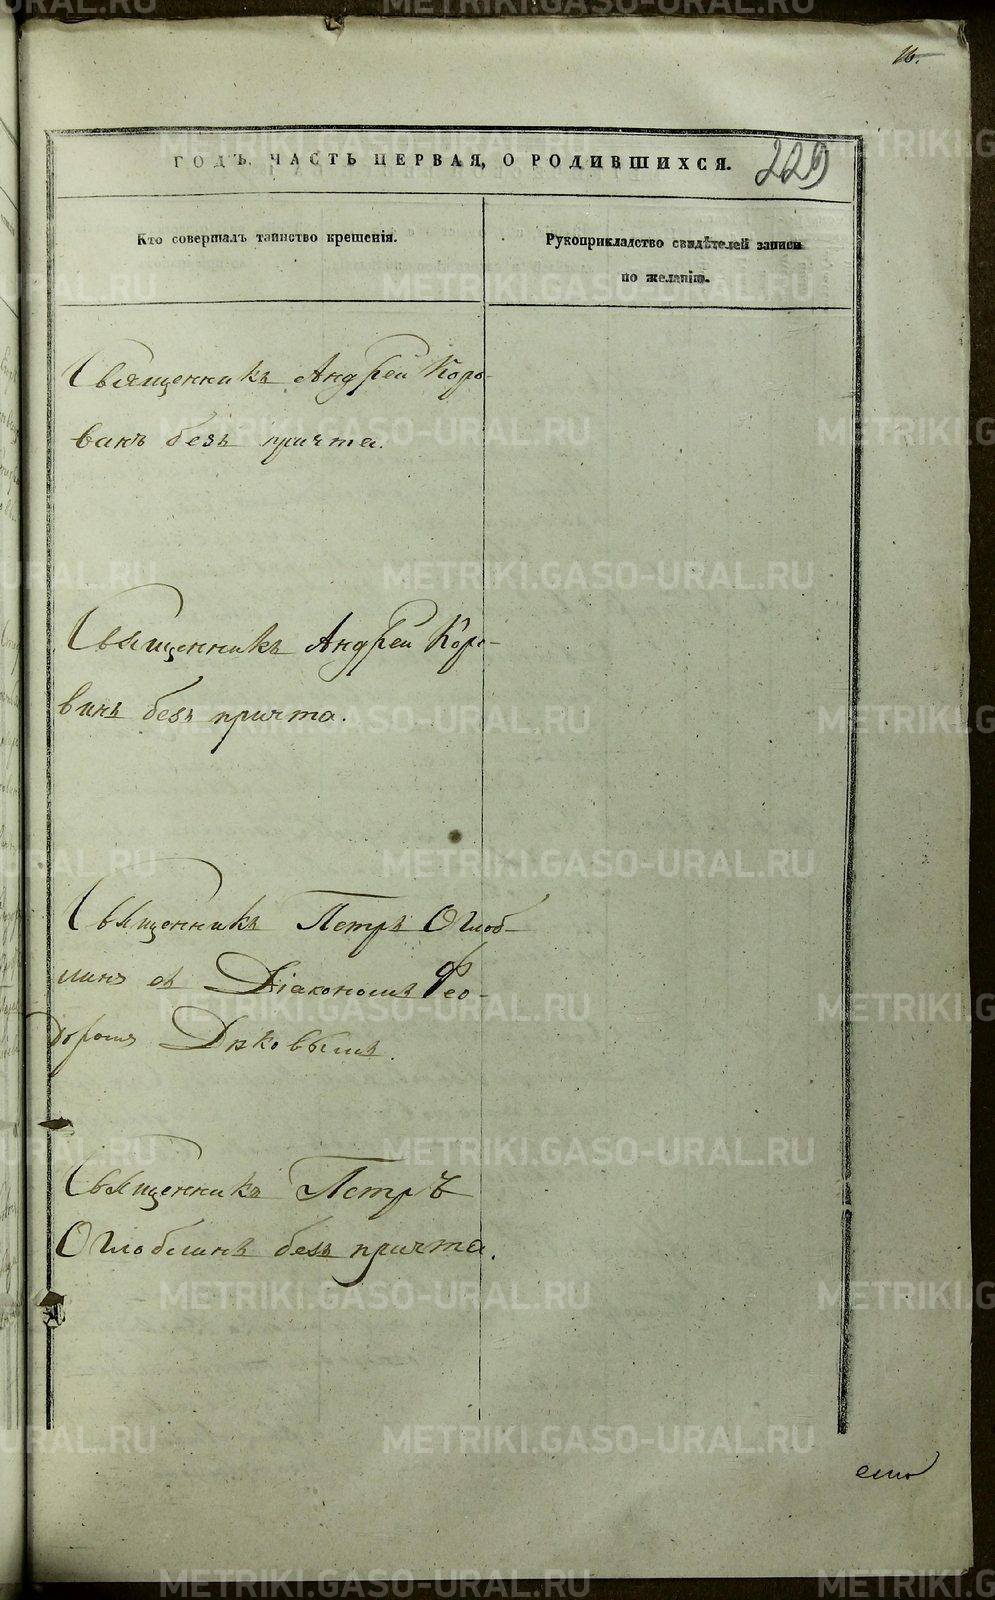 16.
ГОДЪ, ЧАСТЬ ПЕРВАЯ, О РОДИВШИХСЯ. 229
Кто совершалъ таинство крещенія.
Рукоприкладство свидѣтелей записи
по желанію.
Священникъ Андрей Коро-
винъ безъ причта.
Священникъ Андрей Коро-
винъ безъ причта.
Священникъ Петръ Оглоб-
линъ съ Діакономъ Фео-
доромъ Дьковымъ.
Священникъ Петръ
Оглоблинъ безъ причта.
METRIKI.GASO-URAL.RU